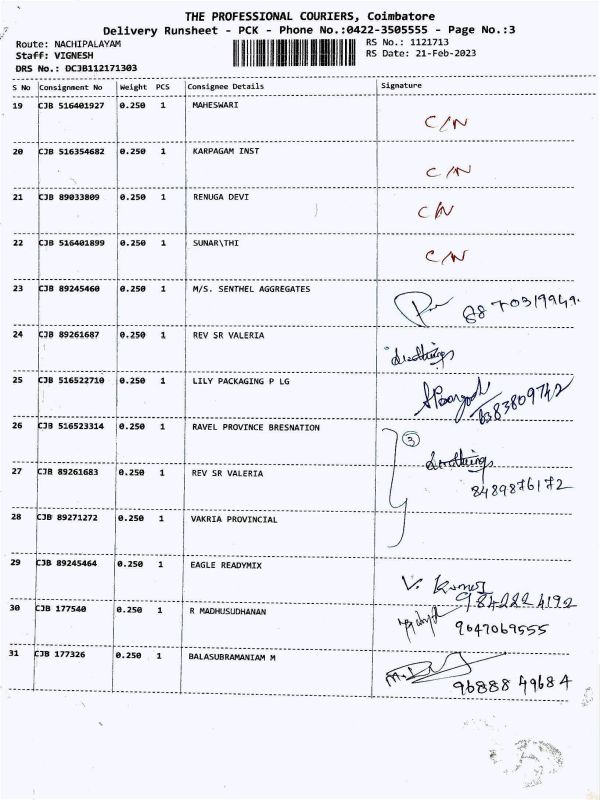 THE PROFESSIONAL COURIERS, Coimbatore
Delivery Runsheet - PCK - Phone No.:0422-3505555 - Page No.:3
Route: NACHIPALAYAM RS No.: 1121713
Staff: VIGNESH RS Date: 21-Feb-2023
DRS No.: DCJB112171303
S No Consignment No Weight PCS Consignee Details Signature
19 CJB 516401927 0.250 1 MAHESWARI C/N
20 CJB 516354682 0.250 1 KARPAGAM INST C/N
21 CJB 89033809 0.250 1 RENUGA DEVI C/N
22 CJB 516401899 0.250 1 SUNAR\THI C/N
23 CJB 89245460 0.250 1 M/S. SENTHEL AGGREGATES
24 CJB 89261687 0.250 1 REV SR VALERIA
25 CJB 516522710 0.250 1 LILY PACKAGING P LG
26 CJB 516523314 0.250 1 RAVEL PROVINCE BRESNATION 3
27 CJB 89261683 0.250 1 REV SR VALERIA 8489876172
28 CJB 89271272 0.250 1 VAKRIA PROVINCIAL
29 CJB 89245464 0.250 1 EAGLE READYMIX V. Kumar
9842224192
30 CJB 177540 0.250 1 R MADHUSUDHANAN 9047069555
31 CJB 177326 0.250 1 BALASUBRAMANIAM M
96888 49684